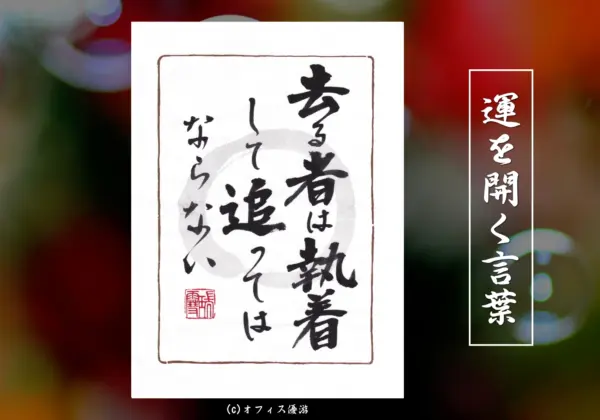 運を開く言葉
去る者は執着
して追っては
ならない
(C)オフィス優游